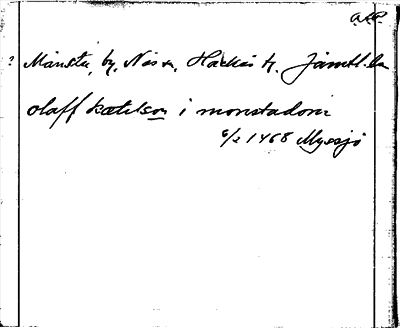 ? Månsta, by, Näs sn, Hackås tg. Jämtl. län
olaff kætilson i monstadom
6/2 1468 Myssjö